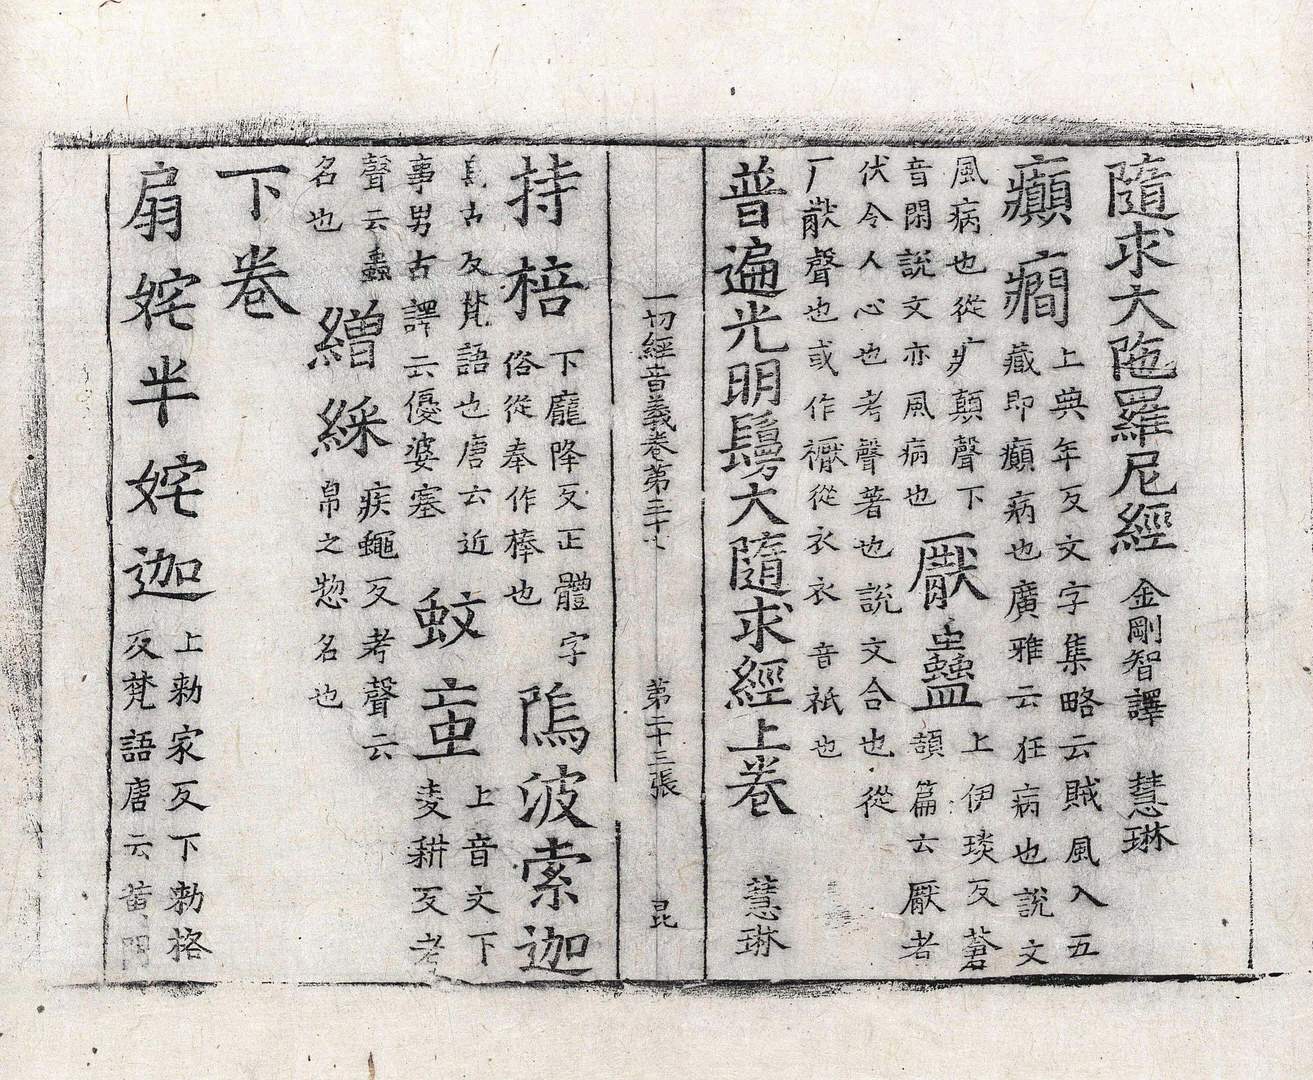 隨求大陁羅尼經 金剛智譯 慧琳
癲癎 上典年反文字集略云賊風入五
藏即癲病也廣雅云狂病也說文
風病也從疒顛聲下
音閑說文亦風病也
厭蠱 上伊琰反蒼
頡篇云厭者
伏令人心也考聲著也說文合也從
厂猒聲也或作 從衣衣音祇也
普遍光明鬘大隨求經上卷 慧琳
一切經音義卷第三十七 第二十三張 昆
持棓 下龐降反正體字
俗從奉作棒也
隝波索迦
烏古反梵語也唐云近
事男古譯云優婆塞
蚊䖟 上音文下
麦耕反考
聲云蟲
名也
繒綵 疾蠅反考聲云
帛之惣名也
下卷
扇姹半姹迦 上勑家反下勑格
反梵語唐云黃門